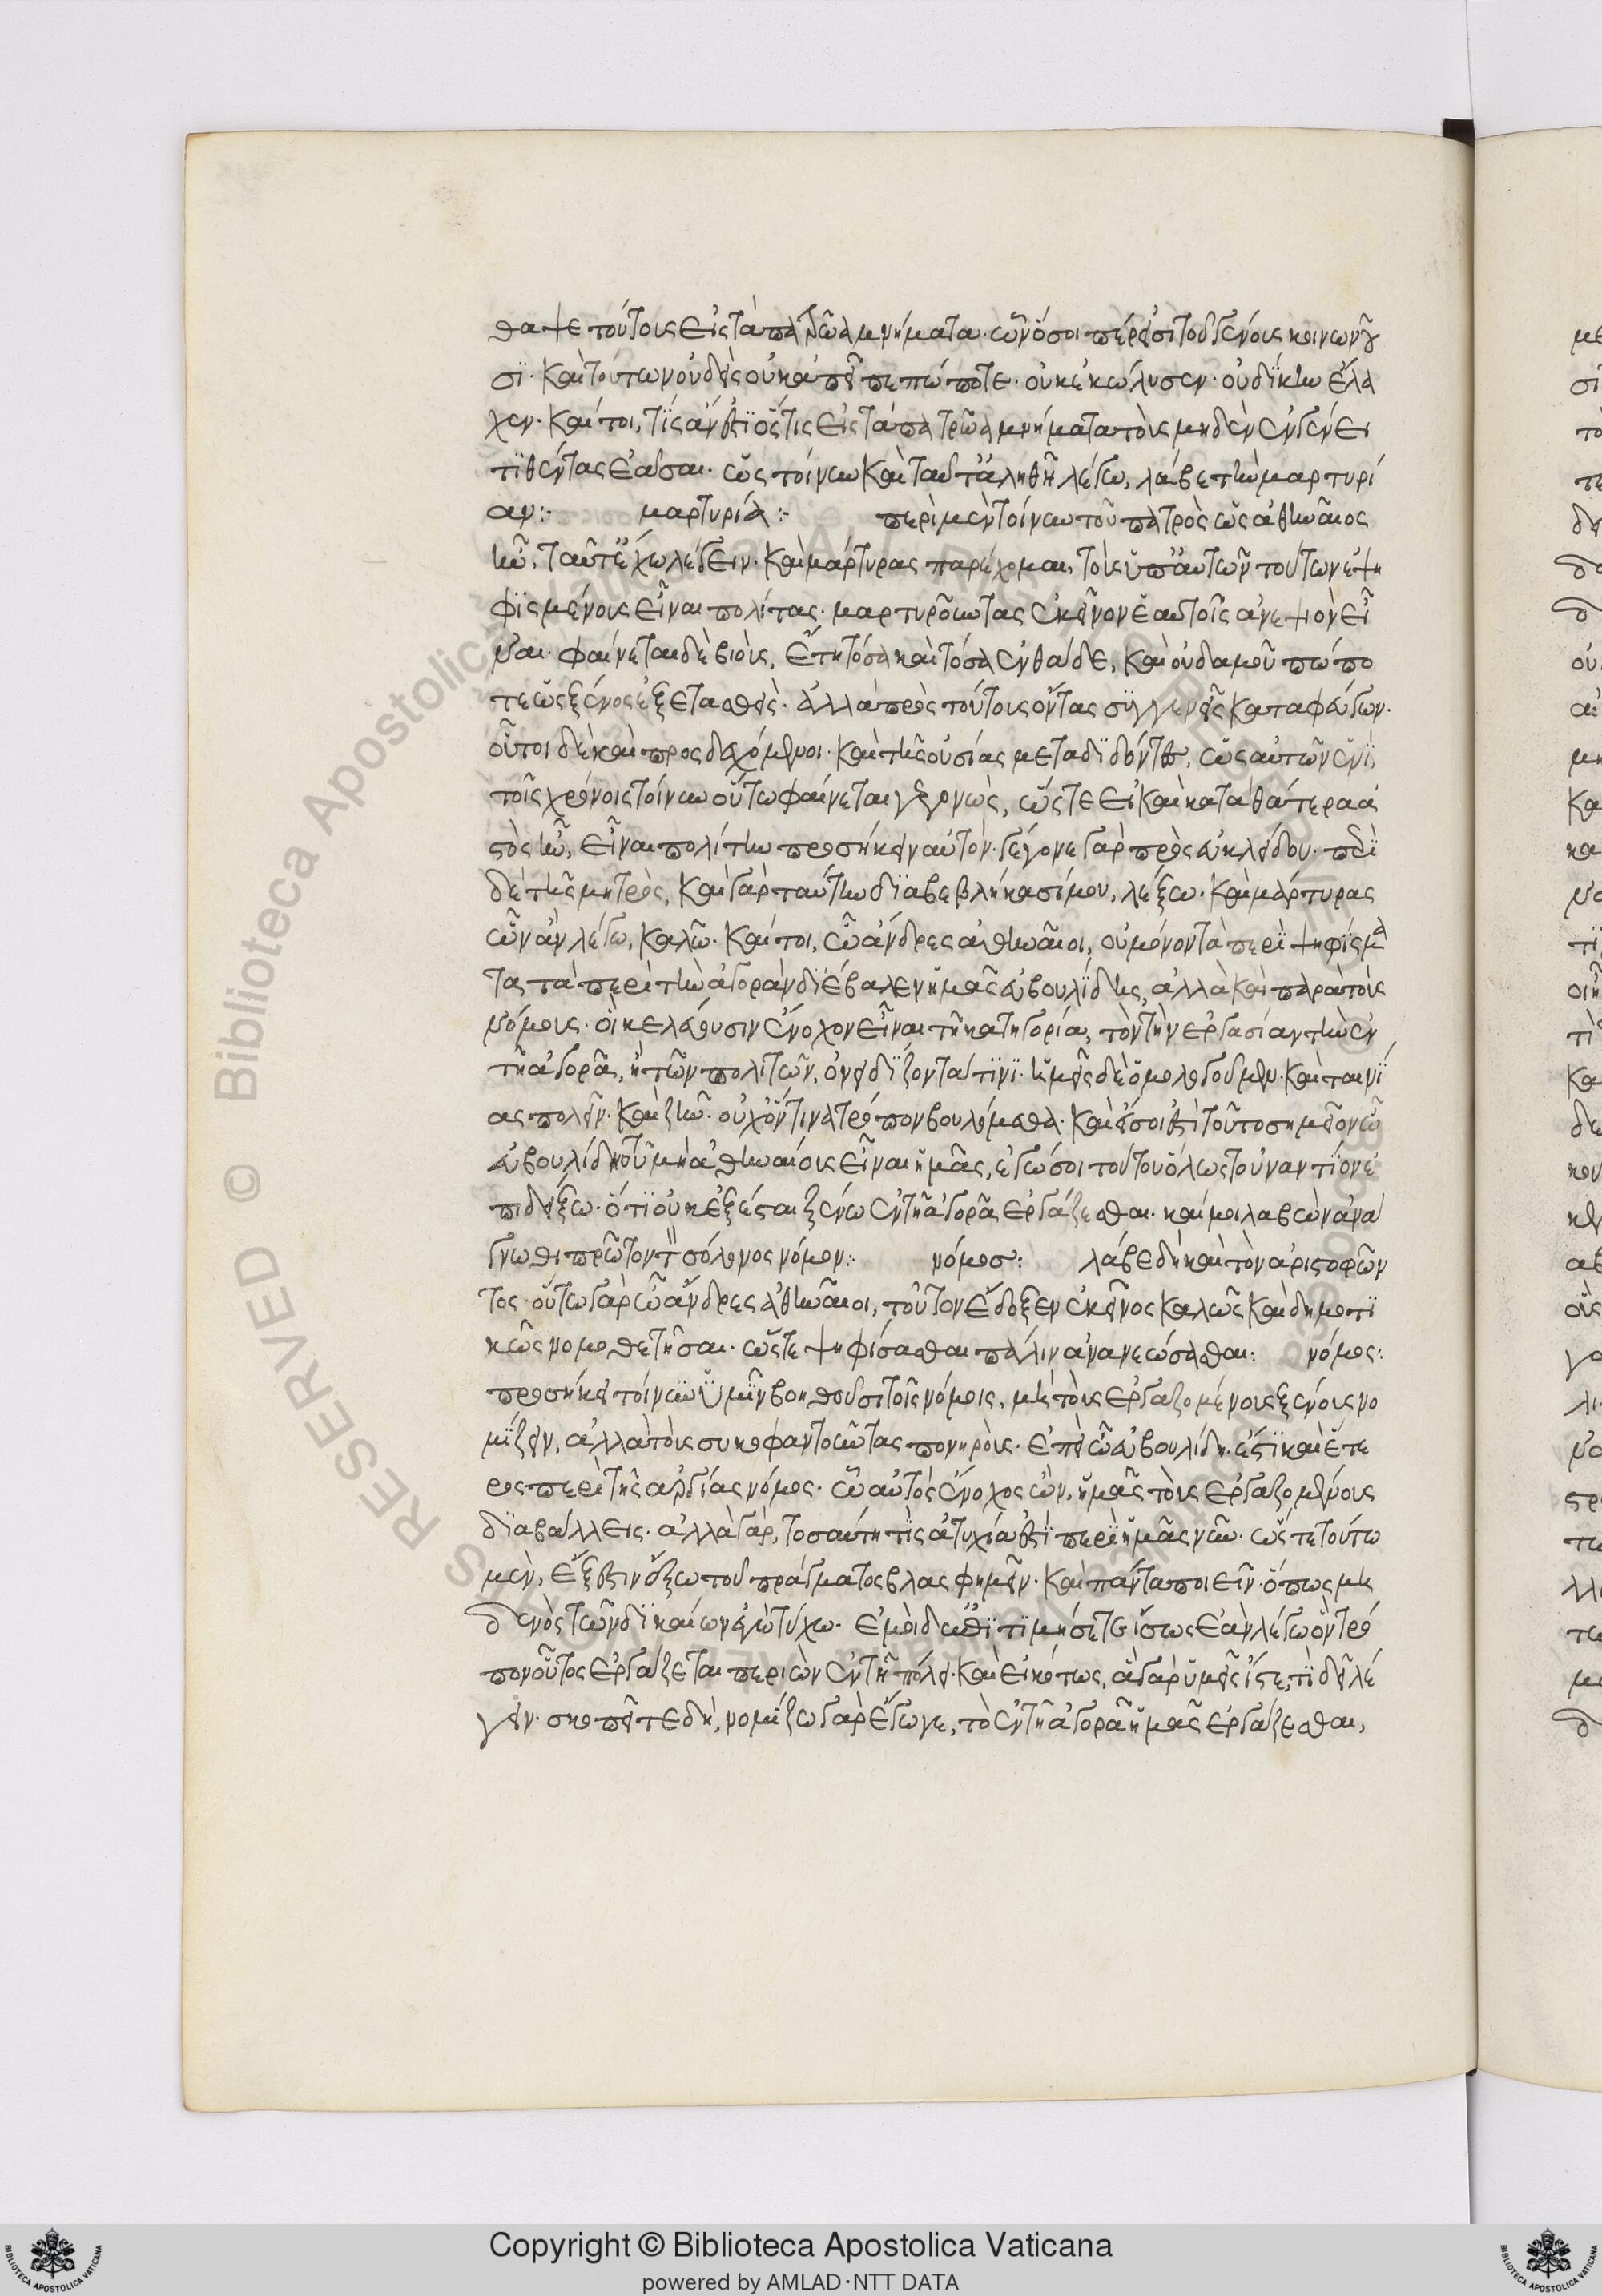 θαψε τούτους εἰς τὰ πατρῶα μνήματα· ὧν ὅσοι πέρ εἰσι τοῦ γένους κοινωνοῦ
σϊ· καὶ τούτων οὐδεὶς οὐκ ἀπεῖπε πώποτε· οὐκ ἐκώλυσεν· οὐ δίκην ἔλα
χεν· καίτοι, τίς ἄν ἐστϊν ὅςτις εἰς τὰ πατρῶα μνήματα τοὺς μηδὲν ἐν γένει
τϊθέντας ἐάσαι· ὡς τοίνυν καὶ ταῦτ' ἀληθῆ λέγω, λάβε τὴν μαρτυρί
αν:· μαρτυρία:· περὶ μὲν τοίνυν τοῦ πατρὸς ὡς ἀθηναῖος
ἦν, ταῦτ' ἔχω λέγειν· καὶ μάρτυρας παρέχομαι, τοὺς ὑπ' αὐτῶν τούτων ἐψη
φϊςμένους εἶναι πολίτας· μαρτυροῦντας ἐκεῖνον ἑαυτοῖς ἀνεψιὸν εἶ
ναι· φαίνεται δὲ βιοὺς, ἔτη τόσα καὶ τόσα ἐνθάδε, καὶ οὐδαμοῦ πώπο
τε ὡς ξένος ἐξετασθεὶς· ἀλλὰ πρὸς τούτους ὄντας συγγενεῖς καταφεύγων·
οὗτοι δὲ καὶ προςδεχόμενοι· καὶ τῆς οὐσίας μεταδϊδόντες, ὡς αὑτῶν ἑνί·
τοῖς χρόνοις τοίνυν οὕτω φαίνεται γεγονὼς, ὥςτε εἰ καὶ κατὰ θάτερα ἀ
στὸς ἦν, εἶναι πολίτην προσήκειν αὐτόν· γέγονε γὰρ πρὸς εὐκλείδου· περὶ
δὲ τῆς μητρὸς, καὶ γὰρ ταύτην δϊαβεβλήκασί μου, λέξω· καὶ μάρτυρας
ὧν ἂν λέγω, καλῶ· καίτοι, ὦ ἄνδρες ἀθηναῖοι, οὐ μόνον τὰ περὶ ψηφίςμα
τα τὰ περὶ τὴν ἀγορὰν δϊέβαλεν ἡμᾶς εὐβουλίδης, ἀλλὰ καὶ παρὰ τοὺς
νόμους· οἳ κελεύουσιν ἔνοχον εἶναι τῇ κατηγορίᾳ, τὸν τὴν ἐργασίαν τὴν ἐν
τῇ ἀγορᾷ, ἢ τῶν πολιτῶν, ὀνειδίζοντά τϊνϊ· ἡμεῖς δὲ ὁμολογοῦμεν· καὶ ταινί
ας πωλεῖν· καὶ ζῆν· οὐχ ὅντινα τρόπον βουλόμεθα· καὶ εἴ σοι ἐστὶ τοῦτο σημεῖον ὦ
εὐβουλίδη τοῦ μὴ ἀθηναίους εἶναι ἡμᾶς, ἐγώ σοι τούτου ὅλως τοὐναντίον ἐ
πιδείξω· ὅτϊ οὐκ ἔξεσται ξένῳ ἐν τῇ ἀγορᾷ ἐργάζεσθαι· καί μοι λαβὼν ἀνά
γνωθι πρῶτον τὸν σόλωνος νόμον:· νόμοσ: λάβε δὴ καὶ τὸν ἀριστοφῶν
τος· οὕτω γὰρ ὦ ἄνδρες ἀθηναῖοι, τοῦτον ἔδοξεν ἐκεῖνος καλῶς καὶ δημοτϊ
κῶς νομοθετῆσαι· ὥςτε ψηφίσασθαι πάλιν ἀνανεώσασθαι: νόμος:
προσήκει τοίνυν ὑμῖν βοηθοῦσι τοῖς νόμοις, μὴ τοὺς ἐργαζομένους ξένους νο
μίζειν, ἀλλὰ τοὺς συκοφαντοῦντας πονηρούς· ἐπεὶ ὦ εὐβουλίδη· ἔστι καὶ ἕτε
ρος περὶ τῆς ἀργίας νόμος· ᾧ αὐτὸς ἔνοχος ὢν, ἡμᾶς τοὺς ἐργαζομένους
δϊαβάλλεις· ἀλλὰ γὰρ, τοσαύτη τὶς ἀτυχία ἐστὶ περὶ ἡμᾶς νῦν· ὥςτε τούτῳ
μὲν, ἔξεστιν ἔξω τοῦ πράγματος βλασφημεῖν· καὶ πάντα ποιεῖν· ὅπως μη
δενὸς τῶν δϊκαίων ἐγὼ τύχω· ἐμοὶ δ' ἐπϊτιμήσετε ἴσως ἐὰν λέγω ὃν τρό
πον οὗτος ἐργάζεται περιὼν ἐν τῇ πόλει· καὶ εἰκότως, ἃ γὰρ ὑμεῖς ἴστε, τὶ δεῖ λέ
γειν· σκοπεῖτε δὴ, νομίζω γὰρ ἔγωγε, τὸ ἐν τῇ ἀγορᾷ ἡμᾶς ἐργάζεσθαι,